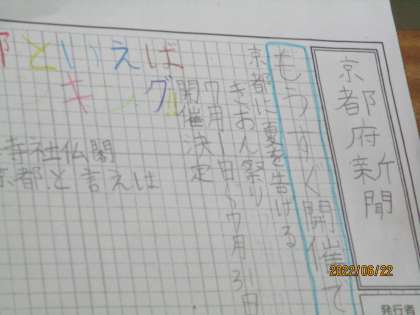 京都府新聞
もうすぐ開催で
京都に夏を告げる
ぎおん祭り
7月1日~7月31日
開催決定
都といえば
キング
寺社仏閣
京都と言えば
発行者
2022/06/22